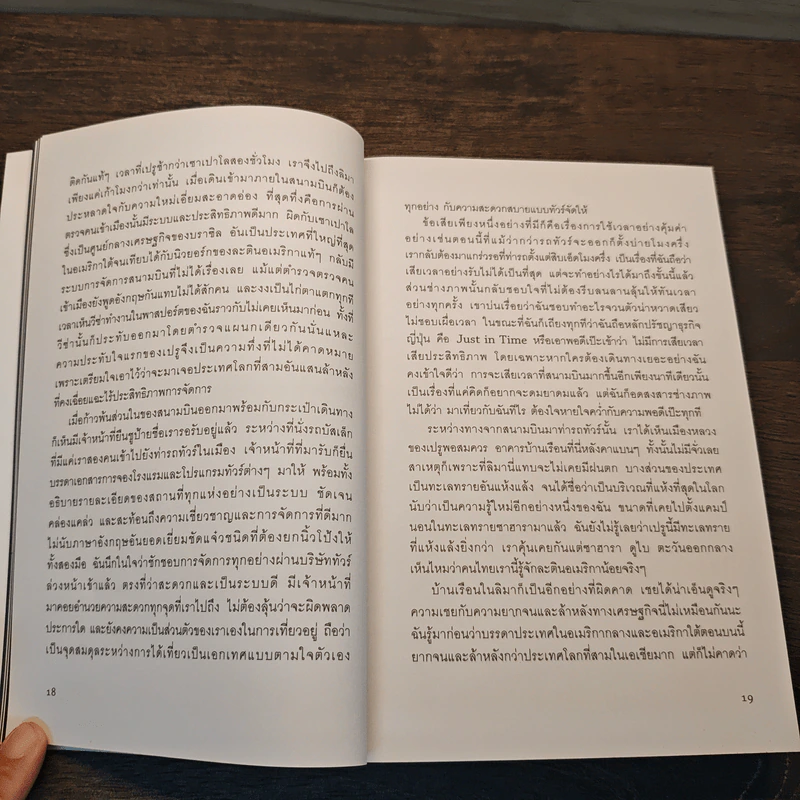 ติดกันแท้ๆ เวลาที่เปรูช้ากว่าเซาเปาโลสองชั่วโมง เราจึงไปถึงลิมา
เพียงแค่เก้าโมงกว่าเท่านั้น เมื่อเดินเข้ามาภายในสนามบินก็ต้อง
ประหลาดใจกับความใหม่เอี่ยมสะอาดอ่อง ที่สุดที่งงคือการผ่าน
ตรวจคนเข้าเมืองนั้นมีระบบและประสิทธิภาพดีมาก ผิดกับเซาเปาโล
ซึ่งเป็นศูนย์กลางเศรษฐกิจของบราซิล อันเป็นประเทศที่ใหญ่ที่สุด
ในอเมริกาใต้จนเทียบได้กับนิวยอร์กของละตินอเมริกาแท้ๆ กลับมี
ระบบการจัดการสนามบินที่ไม่ได้เรื่องเลย แม้แต่ตำรวจตรวจคน
เข้าเมืองยังพูดอังกฤษกันแทบไม่ได้สักคน และงงเป็นไก่ตาแตกทุกที
เวลาเห็นวีซ่าทำงานในพาสปอร์ตของฉันราวกับไม่เคยเห็นมาก่อน ทั้งที่
วีซ่านั้นก็ประทับออกมาโดยตำรวจแผนกเดียวกันนั่นแหละ
ความประทับใจแรกของเปรูจึงเป็นความทึ่งที่ไม่ได้คาดหมาย
เพราะเตรียมใจเอาไว้ว่าจะมาเจอประเทศโลกที่สามอันแสนล้าหลัง
ที่คงเฉื่อยแฉะไร้ประสิทธิภาพการจัดการ
เมื่อก้าวพ้นส่วนในของสนามบินออกมาพร้อมกับกระเป๋าเดินทาง
ก็เห็นมีเจ้าหน้าที่ยืนชูป้ายชื่อเรารอรับอยู่แล้ว ระหว่างที่นั่งรถบัสเล็ก
ที่มีแค่เราสองคนเข้าไปยังท่ารถทัวร์ในเมือง เจ้าหน้าที่ที่มารับก็ยื่น
บรรดาเอกสารการจองโรงแรมและโปรแกรมทัวร์ต่างๆ มาให้ พร้อมทั้ง
อธิบายรายละเอียดของสถานที่ทุกแห่งอย่างเป็นระบบ ชัดเจน
คล่องแคล่ว และสะท้อนถึงความเชี่ยวชาญและการจัดการที่ดีมาก
ไม่นับภาษาอังกฤษอันยอดเยี่ยมชัดแจ๋วชนิดที่ต้องยกนิ้วโป้งให้
ทั้งสองมือ ฉันนึกในใจว่าชักชอบการจัดการทุกอย่างผ่านบริษัททัวร์
ล่วงหน้าเข้าแล้ว ตรงที่ว่าสะดวกและเป็นระบบดี มีเจ้าหน้าที่
มาคอยอำนวยความสะดวกทุกจุดที่เราไปถึง ไม่ต้องลุ้นว่าจะผิดพลาด
ประการใด และยังคงความเป็นส่วนตัวของเราเองในการเที่ยวอยู่ ถือว่า
เป็นจุดสมดุลระหว่างการได้เที่ยวเป็นเอกเทศแบบตามใจตัวเอง
18
ทุกอย่าง กับความสะดวกสบายแบบทัวร์จัดให้
ข้อเสียเพียงหนึ่งอย่างที่มีก็คือเรื่องการใช้เวลาอย่างคุ้มค่า
อย่างเช่นตอนนี้ที่แม้ว่ากว่ารถทัวร์จะออกก็ตั้งบ่ายโมงครึ่ง
เรากลับต้องมาแกร่วรอที่ท่ารถตั้งแต่สิบเอ็ดโมงครึ่ง เป็นเรื่องที่ฉันถือว่า
เสียเวลาอย่างรับไม่ได้เป็นที่สุด แต่จะทำอย่างไรได้มาถึงขั้นนี้แล้ว
ส่วนช่างภาพนั้นกลับชอบใจที่ไม่ต้องรีบลนลานลุ้นให้ทันเวลา
อย่างทุกครั้ง เขาบ่นเรื่อยว่าฉันชอบทำอะไรจวนตัวน่าหวาดเสียว
ไม่ชอบเผื่อเวลา ในขณะที่ฉันก็เถียงทุกทีว่าฉันถือหลักปรัชญาธุรกิจ
ญี่ปุ่น คือ Just in Time หรือเอาพอดีเป๊ะเข้าว่า ไม่มีการเสียเวลา
เสียประสิทธิภาพ โดยเฉพาะหากใครต้องเดินทางเยอะอย่างฉัน
คงเข้าใจดีว่า การจะเสียเวลาที่สนามบินมากขึ้นอีกเพียงนาทีเดียวนั้น
เป็นเรื่องที่แค่คิดก็อยากจะดมยาดมแล้ว แต่ฉันก็อดสงสารช่างภาพ
ไม่ได้ว่า มาเที่ยวกับฉันทีไร ต้องใจหายใจคว่ำกับความพอดีเป๊ะทุกที
ระหว่างทางจากสนามบินมาท่ารถทัวร์นั้น เราได้เห็นเมืองหลวง
ของเปรูพอสมควร อาคารบ้านเรือนที่นี่หลังคาแบนๆ ทั้งนั้นไม่มีจั่วเลย
สาเหตุก็เพราะที่ลิมานี่แทบจะไม่เคยมีฝนตก บางส่วนของประเทศ
เป็นทะเลทรายอันแห้งแล้ง จนได้ชื่อว่าเป็นบริเวณที่แห้งที่สุดในโลก
นับว่าเป็นความรู้ใหม่อีกอย่างหนึ่งของฉัน ขนาดที่เคยไปตั้งแคมป์
นอนในทะเลทรายซาฮารามาแล้ว ฉันยังไม่รู้เลยว่าเปรูนี่มีทะเลทราย
ที่แห้งแล้งยิ่งกว่า เราคุ้นเคยกันแต่ซาฮารา ดูไบ ตะวันออกกลาง
เห็นไหมว่าคนไทยเรานี้รู้จักละตินอเมริกาน้อยจริงๆ
บ้านเรือนในลิมาก็เป็นอีกอย่างที่ผิดคาด เชยได้น่าเอ็นดูจริงๆ
ความเชยกับความยากจนและล้าหลังทางเศรษฐกิจนี่ไม่เหมือนกันนะ
ฉันรู้มาก่อนว่าบรรดาประเทศในอเมริกากลางและอเมริกาใต้ตอนบนนี้
ยากจนและล้าหลังกว่าประเทศโลกที่สามในเอเชียมาก แต่ก็ไม่คาดว่า
19